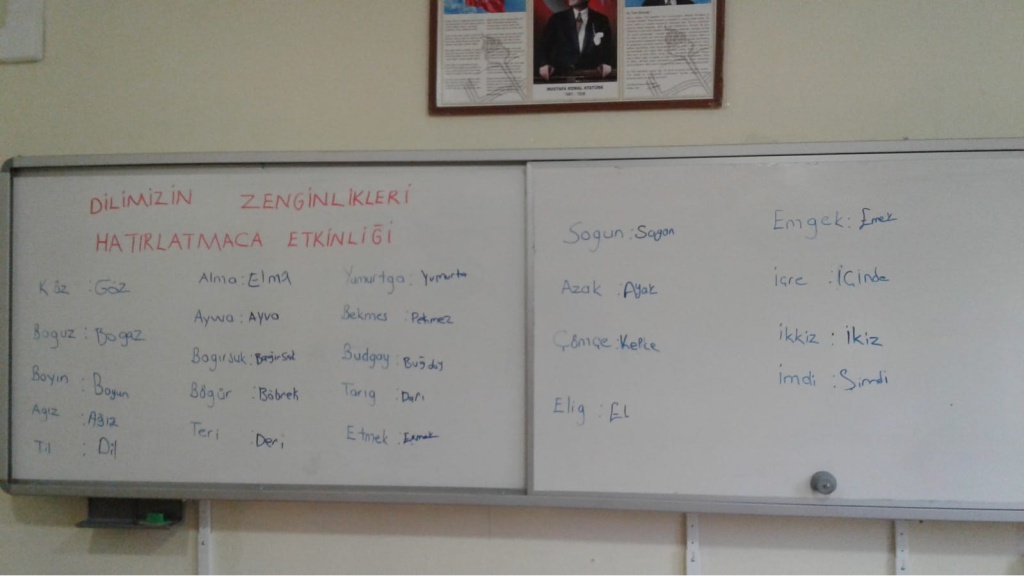 MUSTAFA KEMAL ATATÜRK
1881 - 1938
DİLİMİZİN ZENGİNLİKLERİ
HATIRLATMACA ETKİNLİĞİ
Köz : Göz
Boguz : Bogaz
Boyın : Boyun
Agız : Ağız
Til : Dil
Alma : Elma
Aywa : Ayva
Bagırsuk : Bağırsak
Bögür : Böbrek
Teri : Deri
Yumurtga : Yumurta
Bekmes : Pekmez
Budgay : Buğday
Tarıg : Darı
Etmek : Ekmek
Sogun : Sogan
Azak : Ayak
Çömçe : Kepçe
Elig : El
Emgek : Emek
İçre : İçinde
İkkiz : İkiz
İmdi : Şimdi